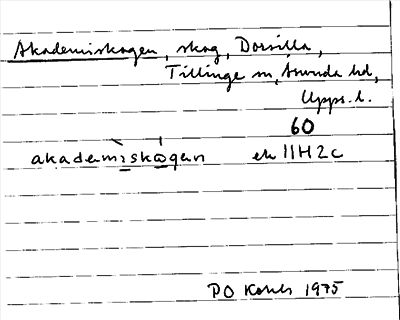 Akademiskogen, skog, Dorsilla,
Tillinge sn, Åsunda hd,
Upps. l.
60
akademiskogen ek 11H2c
PO 1975